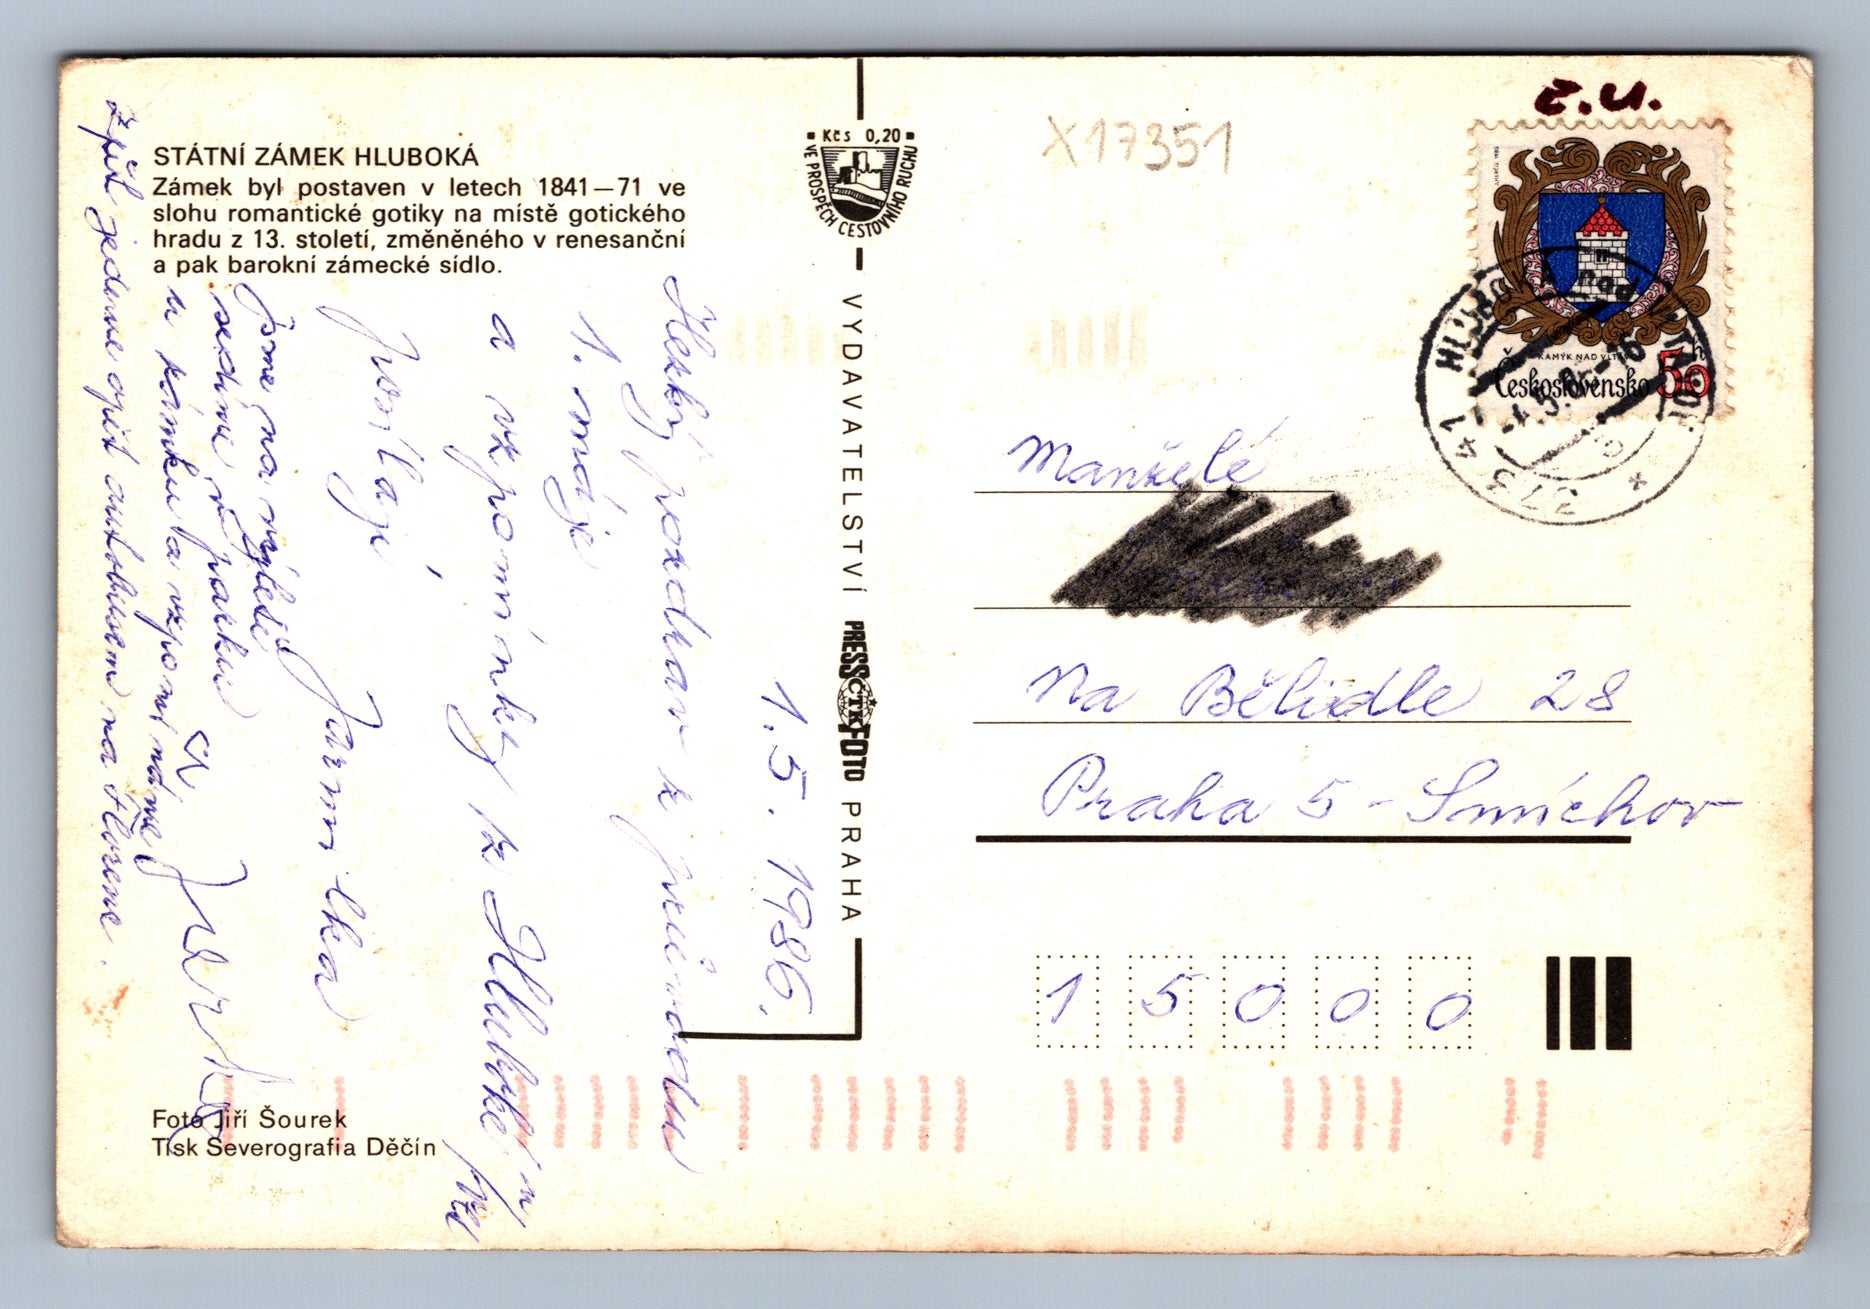 STÁTNÍ ZÁMEK HLUBOKÁ
Zámek byl postaven v letech 1841—71 ve
slohu romantické gotiky na místě gotického
hradu z 13. století, změněného v renesanční
a pak barokní zámecké sídlo.
1. 5. 1986.
Hezký pozdrav k průvodu
1. máje
a vzpomínky z Hluboké n/Vlt
posílají,
Jarmilka
jsme na výletě
sedíme v parku
u zámku a vzpomínáme
Zpět jedeme opět autobusem na Florenc.
Foto Jiří Šourek
Tisk Severografia Děčín
Kčs 0,20
VE PROSPĚCH CESTOVNÍHO RUCHU
VYDAVATELSTVÍ PRESSFOTO PRAHA
ČTK
X17351
Z.U.
KAMÝK NAD VLTAVOU
Československo 50 h
373 41 HLUBOKÁ nad VLTAVOU
Manželé
Na Bělidle 28
Praha 5 - Smíchov
1 5 0 0 0